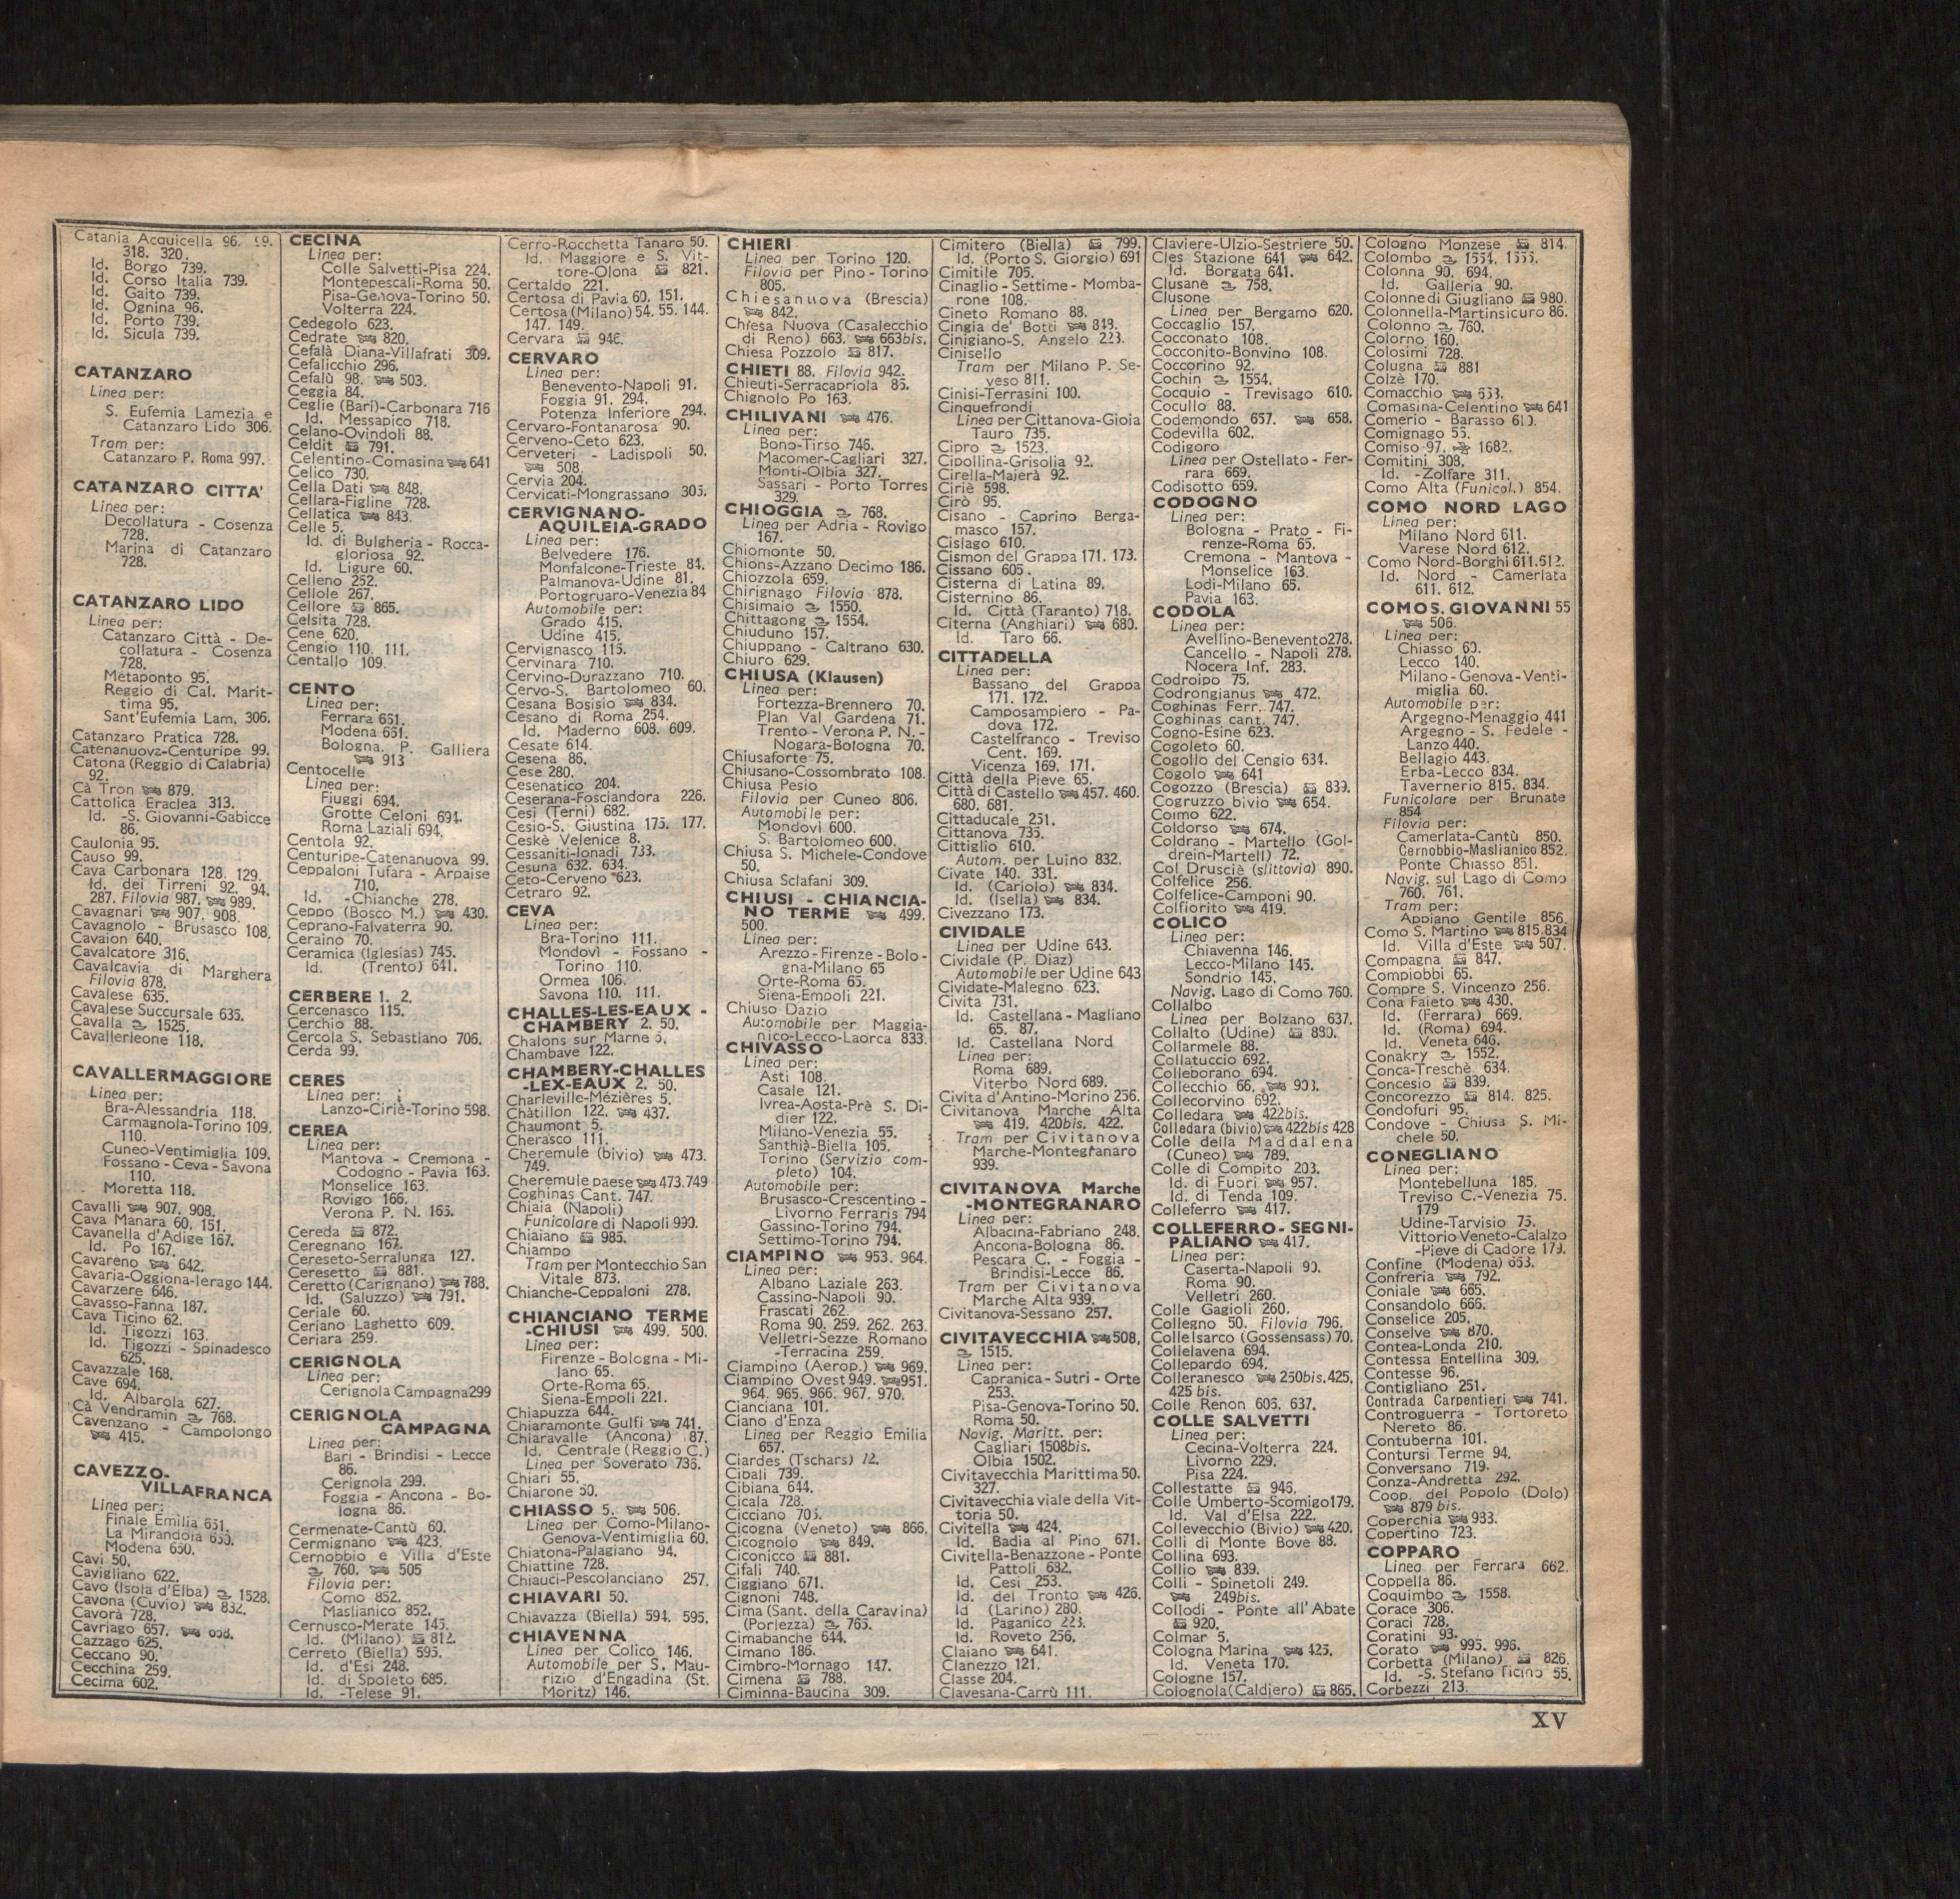 Catania Acquicella 96.
318. 320.
Id. Borgo 739.
Id. Corso Italia 739.
Id. Gaito 739.
Id. Ognina 96.
Id. Porto 739.
Id. Sicula 739.
CATANZARO
Linea per:
S. Eufemia Lamezia e
Catanzaro Lido 306.
Tram per:
Catanzaro P. Roma 997.
CATANZARO CITTA'
Linea per:
Decollatura - Cosenza
728.
Marina di Catanzaro
728.
CATANZARO LIDO
Linea per:
Catanzaro Città - De-
collatura - Cosenza
728.
Metaponto 95.
Reggio di Cal. Marit-
tima 95.
Sant'Eufemia Lam. 306.
Catanzaro Pratica 728.
Catenanuova-Centuripe 99.
Catona (Reggio di Calabria)
92.
Cà Tron 879.
Cattolica Eraclea 313.
Id. -S. Giovanni-Gabicce
86.
Caulonia 95.
Causo 99.
Cava Carbonara 128. 129.
Id. dei Tirreni 92. 94.
287. Filovia 987. 989.
Cavagnari 907. 908.
Cavagnolo - Brusasco 108.
Cavaion 640.
Cavalcatore 316.
Cavalcavia di Marghera
Filovia 878.
Cavalese 635.
Cavalese Succursale 635.
Cavalla 1525.
Cavallerleone 118.
CAVALLERMAGGIORE
Linea per:
Bra-Alessandria 118.
Carmagnola-Torino 109.
110.
Cuneo-Ventimiglia 109.
Fossano - Ceva - Savona
110.
Moretta 118.
Cavalli 907. 908.
Cava Manara 60. 151.
Cavanella d'Adige 167.
Id. Po 167.
Cavareno 642.
Cavaria-Oggiona-Ierago 144.
Cavarzere 646.
Cavasso-Fanna 187.
Cava Ticino 62.
Id. Tigozzi 163.
Id. Tigozzi - Spinadesco
625.
Cavazzale 168.
Cave 694.
Id. Albarola 627.
Cà Vendramin 768.
Cavenzano - Campolongo
415.
CAVEZZO-
VILLAFRANCA
Linea per:
Finale Emilia 651.
La Mirandola 650.
Modena 650.
Cavi 50.
Cavigliano 622.
Cavo (Isola d'Elba) 1528.
Cavona (Cuvio) 832.
Cavorà 728.
Cavriago 657.
Cazzago 625.
Ceccano 90.
Cecchina 259.
Cecima 602.
CECINA
Linea per:
Colle Salvetti-Pisa 224.
Montepescali-Roma 50.
Pisa-Genova-Torino 50.
Volterra 224.
Cedegolo 623.
Cedrate 820.
Cefalà Diana-Villafrati 309.
Cefalicchio 296.
Cefalù 98. 503.
Ceggia 84.
Ceglie (Bari)-Carbonara 716
Id. Messapico 718.
Celano-Ovindoli 88.
Celdit 791.
Celentino-Comasina 641
Celico 730.
Cella Dati 848.
Cellara-Figline 728.
Cellatica 843.
Celle 5.
Id. di Bulgheria - Rocca-
gloriosa 92.
Id. Ligure 60.
Celleno 252.
Cellole 267.
Cellore 865.
Celsita 728.
Cene 620.
Cengio 110. 111.
Centallo 109.
CENTO
Linea per:
Ferrara 661.
Modena 661.
Bologna. P. Galliera
913
Centocelle
Linea per:
Fiuggi 694.
Grotte Celoni 694.
Roma Laziali 694.
Centola 92.
Centuripe-Catenanuova 99.
Ceppaloni Tufara - Arpaise
710.
Id. -Chianche 278.
Ceppo (Bosco M.) 430.
Ceprano-Falvaterra 90.
Ceraino 70.
Ceramica (Iglesias) 745.
Id. (Trento) 641.
CERBERE 1. 2.
Cercenasco 115.
Cerchio 88.
Cercola S. Sebastiano 706.
Cerda 99.
CERES
Linea per:
Lanzo-Ciriè-Torino 598.
CEREA
Linea per:
Mantova - Cremona -
Codogno - Pavia 163.
Monselice 163.
Rovigo 166.
Verona P. N. 165.
Cereda 872.
Ceregnano 167.
Cereseto-Serralunga 127.
Ceresetto 881.
Ceretto (Carignano) 788.
Id. (Saluzzo) 791.
Ceriale 60.
Ceriano Laghetto 609.
Ceriara 259.
CERIGNOLA
Linea per:
Cerignola Campagna 299
CERIGNOLA
CAMPAGNA
Linea per:
Bari - Brindisi - Lecce
86.
Cerignola 299.
Foggia - Ancona - Bo-
logna 86.
Cermenate-Cantù 60.
Cermignano 423.
Cernobbio e Villa d'Este
760. 505
Filovia per:
Como 852.
Maslianico 852.
Cernusco-Merate 145.
Id. (Milano) 812.
Cerreto (Biella) 595.
Id. d'Esi 248.
Id. di Spoleto 685.
Id. -Telese 91.
Cerro-Rocchetta Tanaro 50.
Id. Maggiore e S. Vit-
tore-Olona 821.
Certaldo 221.
Certosa di Pavia 60. 151.
Certosa (Milano) 54. 55. 144.
147. 149.
Cervara 946.
CERVARO
Linea per:
Benevento-Napoli 91.
Foggia 91. 294.
Potenza Inferiore 294.
Cervaro-Fontanarosa 90.
Cerveno-Ceto 623.
Cerveteri - Ladispoli 50.
508.
Cervia 204.
Cervicati-Mongrassano 305.
CERVIGNANO-
AQUILEIA-GRADO
Linea per:
Belvedere 176.
Monfalcone-Trieste 84.
Palmanova-Udine 81.
Portogruaro-Venezia 84
Automobile per:
Grado 415.
Udine 415.
Cervignasco 115.
Cervinara 710.
Cervino-Durazzano 710.
Cervo-S. Bartolomeo 60.
Cesana Bosisio 834.
Cesano di Roma 254.
Id. Maderno 608. 609.
Cesate 614.
Cesena 86.
Cese 280.
Cesenatico 204.
Ceserana-Fosciandora 226.
Cesi (Terni) 682.
Cesio-S. Giustina 175. 177.
Ceskè Velenice 8.
Cessaniti-Jonadi 733.
Cesuna 632. 634.
Ceto-Cerveno 623.
Cetraro 92.
CEVA
Linea per:
Bra-Torino 111.
Mondovì - Fossano -
Torino 110.
Ormea 106.
Savona 110. 111.
CHALLES-LES-EAUX -
CHAMBERY 2. 50.
Chalons sur Marne 5.
Chambave 122.
CHAMBERY-CHALLES
-LEX-EAUX 2. 50.
Charleville-Mézières 5.
Châtillon 122. 437.
Chaumont 5.
Cherasco 111.
Cheremule (bivio) 473.
749.
Cheremule paese 473.749
Coghinas Cant. 747.
Chiaia (Napoli)
Funicolare di Napoli 990.
Chiaiano 985.
Chiampo
Tram per Montecchio San
Vitale 873.
Chianche-Ceppaloni 278.
CHIANCIANO TERME
-CHIUSI 499. 500.
Linea per:
Firenze - Bologna - Mi-
lano 65.
Orte-Roma 65.
Siena-Empoli 221.
Chiapuzza 644.
Chiaramonte Gulfi 741.
Chiaravalle (Ancona) 87.
Id. Centrale (Reggio C.)
Linea per Soverato 736.
Chiari 55.
Chiarone 50.
CHIASSO 5. 506.
Linea per Como-Milano-
Genova-Ventimiglia 60.
Chiatona-Palagiano 94.
Chiattine 728.
Chiauci-Pescolanciano 257.
CHIAVARI 50.
Chiavazza (Biella) 594. 595.
CHIAVENNA
Linea per Colico 146.
Automobile per S. Mau-
rizio d'Engadina (St.
Moritz) 146.
CHIERI
Linea per Torino 120.
Filovia per Pino - Torino
805.
Chiesanuova (Brescia)
842.
Chiesa Nuova (Casalecchio
di Reno) 663. 663bis.
Chiesa Pozzolo 817.
CHIETI 88. Filovia 942.
Chieuti-Serracapriola 86.
Chignolo Po 163.
CHILIVANI 476.
Linea per:
Bono-Tirso 746.
Macomer-Cagliari 327.
Monti-Olbia 327.
Sassari - Porto Torres
329.
CHIOGGIA 768.
Linea per Adria - Rovigo
167.
Chiomonte 50.
Chions-Azzano Decimo 186.
Chiozzola 659.
Chirignago Filovia 878.
Chisimaio 1550.
Chittagong 1554.
Chiuduno 157.
Chiuppano - Caltrano 630.
Chiuro 629.
CHIUSA (Klausen)
Linea per:
Fortezza-Brennero 70.
Plan Val Gardena 71.
Trento - Verona P. N. -
Nogara-Bologna 70.
Chiusaforte 75.
Chiusano-Cossombrato 108.
Chiusa Pesio
Filovia per Cuneo 806.
Automobile per:
Mondovì 600.
S. Bartolomeo 600.
Chiusa S. Michele-Condove
50.
Chiusa Sclafani 309.
CHIUSI - CHIANCIA-
NO TERME 499.
500.
Linea per:
Arezzo - Firenze - Bolo-
gna-Milano 65
Orte-Roma 65.
Siena-Empoli 221.
Chiuso Dazio
Automobile per Maggia-
nico-Lecco-Laorca 833.
CHIVASSO
Linea per:
Asti 108.
Casale 121.
Ivrea-Aosta-Prè S. Di-
dier 122.
Milano-Venezia 55.
Santhià-Biella 105.
Torino (Servizio com-
pleto) 104.
Automobile per:
Brusasco-Crescentino -
Livorno Ferraris 794
Gassino-Torino 794.
Settimo-Torino 794.
CIAMPINO 953. 964.
Linea per:
Albano Laziale 263.
Cassino-Napoli 90.
Frascati 262.
Roma 90. 259. 262. 263.
Velletri-Sezze Romano
-Terracina 259.
Ciampino (Aerop.) 969.
Ciampino Ovest 949. 951.
964. 965. 966. 967. 970.
Cianciana 101.
Ciano d'Enza
Linea per Reggio Emilia
657.
Ciardes (Tschars) 72.
Cibali 739.
Cibiana 644.
Cicala 728.
Cicciano 705.
Cicogna (Veneto) 866.
Cicognolo 849.
Ciconicco 881.
Cifali 740.
Ciggiano 671.
Cignoni 748.
Cima (Sant. della Caravina)
(Porlezza) 765.
Cimabanche 644.
Cimano 186.
Cimbro-Mornago 147.
Cimena 788.
Ciminna-Baucina 309.
Cimitero (Biella) 799.
Id. (Porto S. Giorgio) 691
Cimitile 705.
Cinaglio - Settime - Momba-
rone 108.
Cineto Romano 88.
Cingia de' Botti 848.
Cinigiano-S. Angelo 223.
Cinisello
Tram per Milano P. Se-
veso 811.
Cinisi-Terrasini 100.
Cinquefrondi
Linea per Cittanova-Gioia
Tauro 735.
Cipro 1523.
Cipollina-Grisolia 92.
Cirella-Majerà 92.
Ciriè 598.
Cirò 95.
Cisano - Caprino Berga-
masco 157.
Cislago 610.
Cismon del Grappa 171. 173.
Cissano 605.
Cisterna di Latina 89.
Cisternino 86.
Id. Città (Taranto) 718.
Citerna (Anghiari) 680.
Id. Taro 66.
CITTADELLA
Linea per:
Bassano del Grappa
171. 172.
Camposampiero - Pa-
dova 172.
Castelfranco - Treviso
Cent. 169.
Vicenza 169. 171.
Città della Pieve 65.
Città di Castello 457. 460.
680. 681.
Cittaducale 251.
Cittanova 735.
Cittiglio 610.
Autom. per Luino 832.
Civate 140. 331.
Id. (Cariolo) 834.
Id. (Isella) 834.
Civezzano 173.
CIVIDALE
Linea per Udine 643.
Cividale (P. Diaz)
Automobile per Udine 643
Cividate-Malegno 623.
Civita 731.
Id. Castellana - Magliano
65. 87.
Id. Castellana Nord
Linea per:
Roma 689.
Viterbo Nord 689.
Civita d'Antino-Morino 256.
Civitanova Marche Alta
419. 420bis. 422.
Tram per Civitanova
Marche-Montegranaro
939.
CIVITANOVA Marche
-MONTEGRANARO
Linea per:
Albacina-Fabriano 248.
Ancona-Bologna 86.
Pescara C. - Foggia -
Brindisi-Lecce 86.
Tram per Civitanova
Marche Alta 939.
Civitanova-Sessano 257.
CIVITAVECCHIA 508.
1515.
Linea per:
Capranica - Sutri - Orte
253.
Pisa-Genova-Torino 50.
Roma 50.
Navig. Maritt. per:
Cagliari 1508bis.
Olbia 1502.
Civitavecchia Marittima 50.
327.
Civitavecchia viale della Vit-
toria 50.
Civitella 424.
Id. Badia al Pino 671.
Civitella-Benazzone - Ponte
Pattoli 682.
Id. Cesi 253.
Id. del Tronto 426.
Id (Larino) 280.
Id. Paganico 223.
Id. Roveto 256.
Claiano 641.
Clanezzo 121.
Classe 204.
Clavesana-Carrù 111.
Claviere-Ulzio-Sestriere 50.
Cles Stazione 641 642.
Id. Borgata 641.
Clusane 758.
Clusone
Linea per Bergamo 620.
Coccaglio 157.
Cocconato 108.
Cocconito-Bonvino 108.
Coccorino 92.
Cochin 1554.
Cocquio - Trevisago 610.
Cocullo 88.
Codemondo 657. 658.
Codevilla 602.
Codigoro
Linea per Ostellato - Fer-
rara 669.
Codisotto 659.
CODOGNO
Linea per:
Bologna - Prato - Fi-
renze-Roma 65.
Cremona - Mantova -
Monselice 163.
Lodi-Milano 65.
Pavia 163.
CODOLA
Linea per:
Avellino-Benevento 278.
Cancello - Napoli 278.
Nocera Inf. 283.
Codroipo 75.
Codrongianus 472.
Coghinas Ferr. 747.
Coghinas cant. 747.
Cogno-Esine 623.
Cogoleto 60.
Cogollo del Cengio 634.
Cogolo 641
Cogozzo (Brescia) 839.
Cogruzzo bivio 654.
Coimo 622.
Coldorso 674.
Coldrano - Martello (Gol-
drein-Martell) 72.
Col Drusciè (slittovia) 890.
Colfelice 256.
Colfelice-Camponi 90.
Colfiorito 419.
COLICO
Linea per:
Chiavenna 146.
Lecco-Milano 145.
Sondrio 145.
Navig. Lago di Como 760.
Collalbo
Linea per Bolzano 637.
Collalto (Udine) 880.
Collarmele 88.
Collatuccio 692.
Colleborano 694.
Collecchio 66. 903.
Collecorvino 692.
Colledara 422bis.
Colledara (bivio) 422bis 428
Colle della Maddalena
(Cuneo) 789.
Colle di Compito 203.
Id. di Fuori 957.
Id. di Tenda 109.
Colleferro 417.
COLLEFERRO - SEGNI-
PALIANO 417.
Linea per:
Caserta-Napoli 90.
Roma 90.
Velletri 260.
Colle Gagioli 260.
Collegno 50. Filovia 796.
Collelsarco (Gossensass) 70.
Collelavena 694.
Collepardo 694.
Colleranesco 250bis. 425.
425 bis.
Colle Renon 606. 637.
COLLE SALVETTI
Linea per:
Cecina-Volterra 224.
Livorno 229.
Pisa 224.
Collestatte 946.
Colle Umberto-Scomigo 179.
Id. Val d'Elsa 222.
Collevecchio (Bivio) 420.
Colli di Monte Bove 88.
Collina 693.
Collio 839.
Colli - Spinetoli 249.
249bis.
Collodi - Ponte all'Abate
920.
Colmar 5.
Cologna Marina 425.
Id. Veneta 170.
Cologne 157.
Colognola (Caldiero) 865.
Cologno Monzese 814.
Colombo 1554. 1555.
Colonna 90. 694.
Id. Galleria 90.
Colonne di Giugliano 980.
Colonnella-Martinsicuro 86.
Colonno 760.
Colorno 160.
Colosimi 728.
Colugna 881
Colzè 170.
Comacchio 653.
Comasina-Celentino 641
Comerio - Barasso 610.
Comignago 55.
Comiso 97. 1682.
Comitini 308.
Id. -Zolfare 311.
Como Alta (Funicol.) 854.
COMO NORD LAGO
Linea per:
Milano Nord 611.
Varese Nord 612.
Como Nord-Borghi 611.612.
Id. Nord - Camerlata
611. 612.
COMO S. GIOVANNI 55
506.
Linea per:
Chiasso 60.
Lecco 140.
Milano - Genova - Venti-
miglia 60.
Automobile per:
Argegno-Menaggio 441
Argegno - S. Fedele -
Lanzo 440.
Bellagio 443.
Erba-Lecco 834.
Tavernerio 815. 834.
Funicolare per Brunate
854
Filovia per:
Camerlata-Cantù 850.
Cernobbio-Maslianico 852.
Ponte Chiasso 851.
Navig. sul Lago di Como
760. 761.
Tram per:
Appiano Gentile 856.
Como S. Martino 815.834
Id. Villa d'Este 507.
Compagna 847.
Compiobbi 65.
Compre S. Vincenzo 256.
Cona Faieto 430.
Id. (Ferrara) 669.
Id. (Roma) 694.
Id. Veneta 646.
Conakry 1552.
Conca-Treschè 634.
Concesio 839.
Concorezzo 814. 825.
Condofuri 95.
Condove - Chiusa S. Mi-
chele 50.
CONEGLIANO
Linea per:
Montebelluna 185.
Treviso C.-Venezia 75.
179
Udine-Tarvisio 75.
Vittorio Veneto-Calalzo
-Pieve di Cadore 179.
Confine (Modena) 653.
Confreria 792.
Coniale 665.
Consandolo 666.
Conselice 205.
Conselve 870.
Contea-Londa 210.
Contessa Entellina 309.
Contesse 96.
Contigliano 251.
Contrada Carpentieri 741.
Controguerra - Tortoreto
Nereto 86.
Contuberna 101.
Contursi Terme 94.
Conversano 719.
Conza-Andretta 292.
Coop. del Popolo (Dolo)
879 bis.
Coperchia 933.
Copertino 723.
COPPARO
Linea per Ferrara 662.
Coppella 86.
Coquimbo 1558.
Corace 306.
Coraci 728.
Coratini 93.
Corato 995. 996.
Corbetta (Milano) 826.
Id. -S. Stefano Ticino 55.
Corbezzi 213.
XV